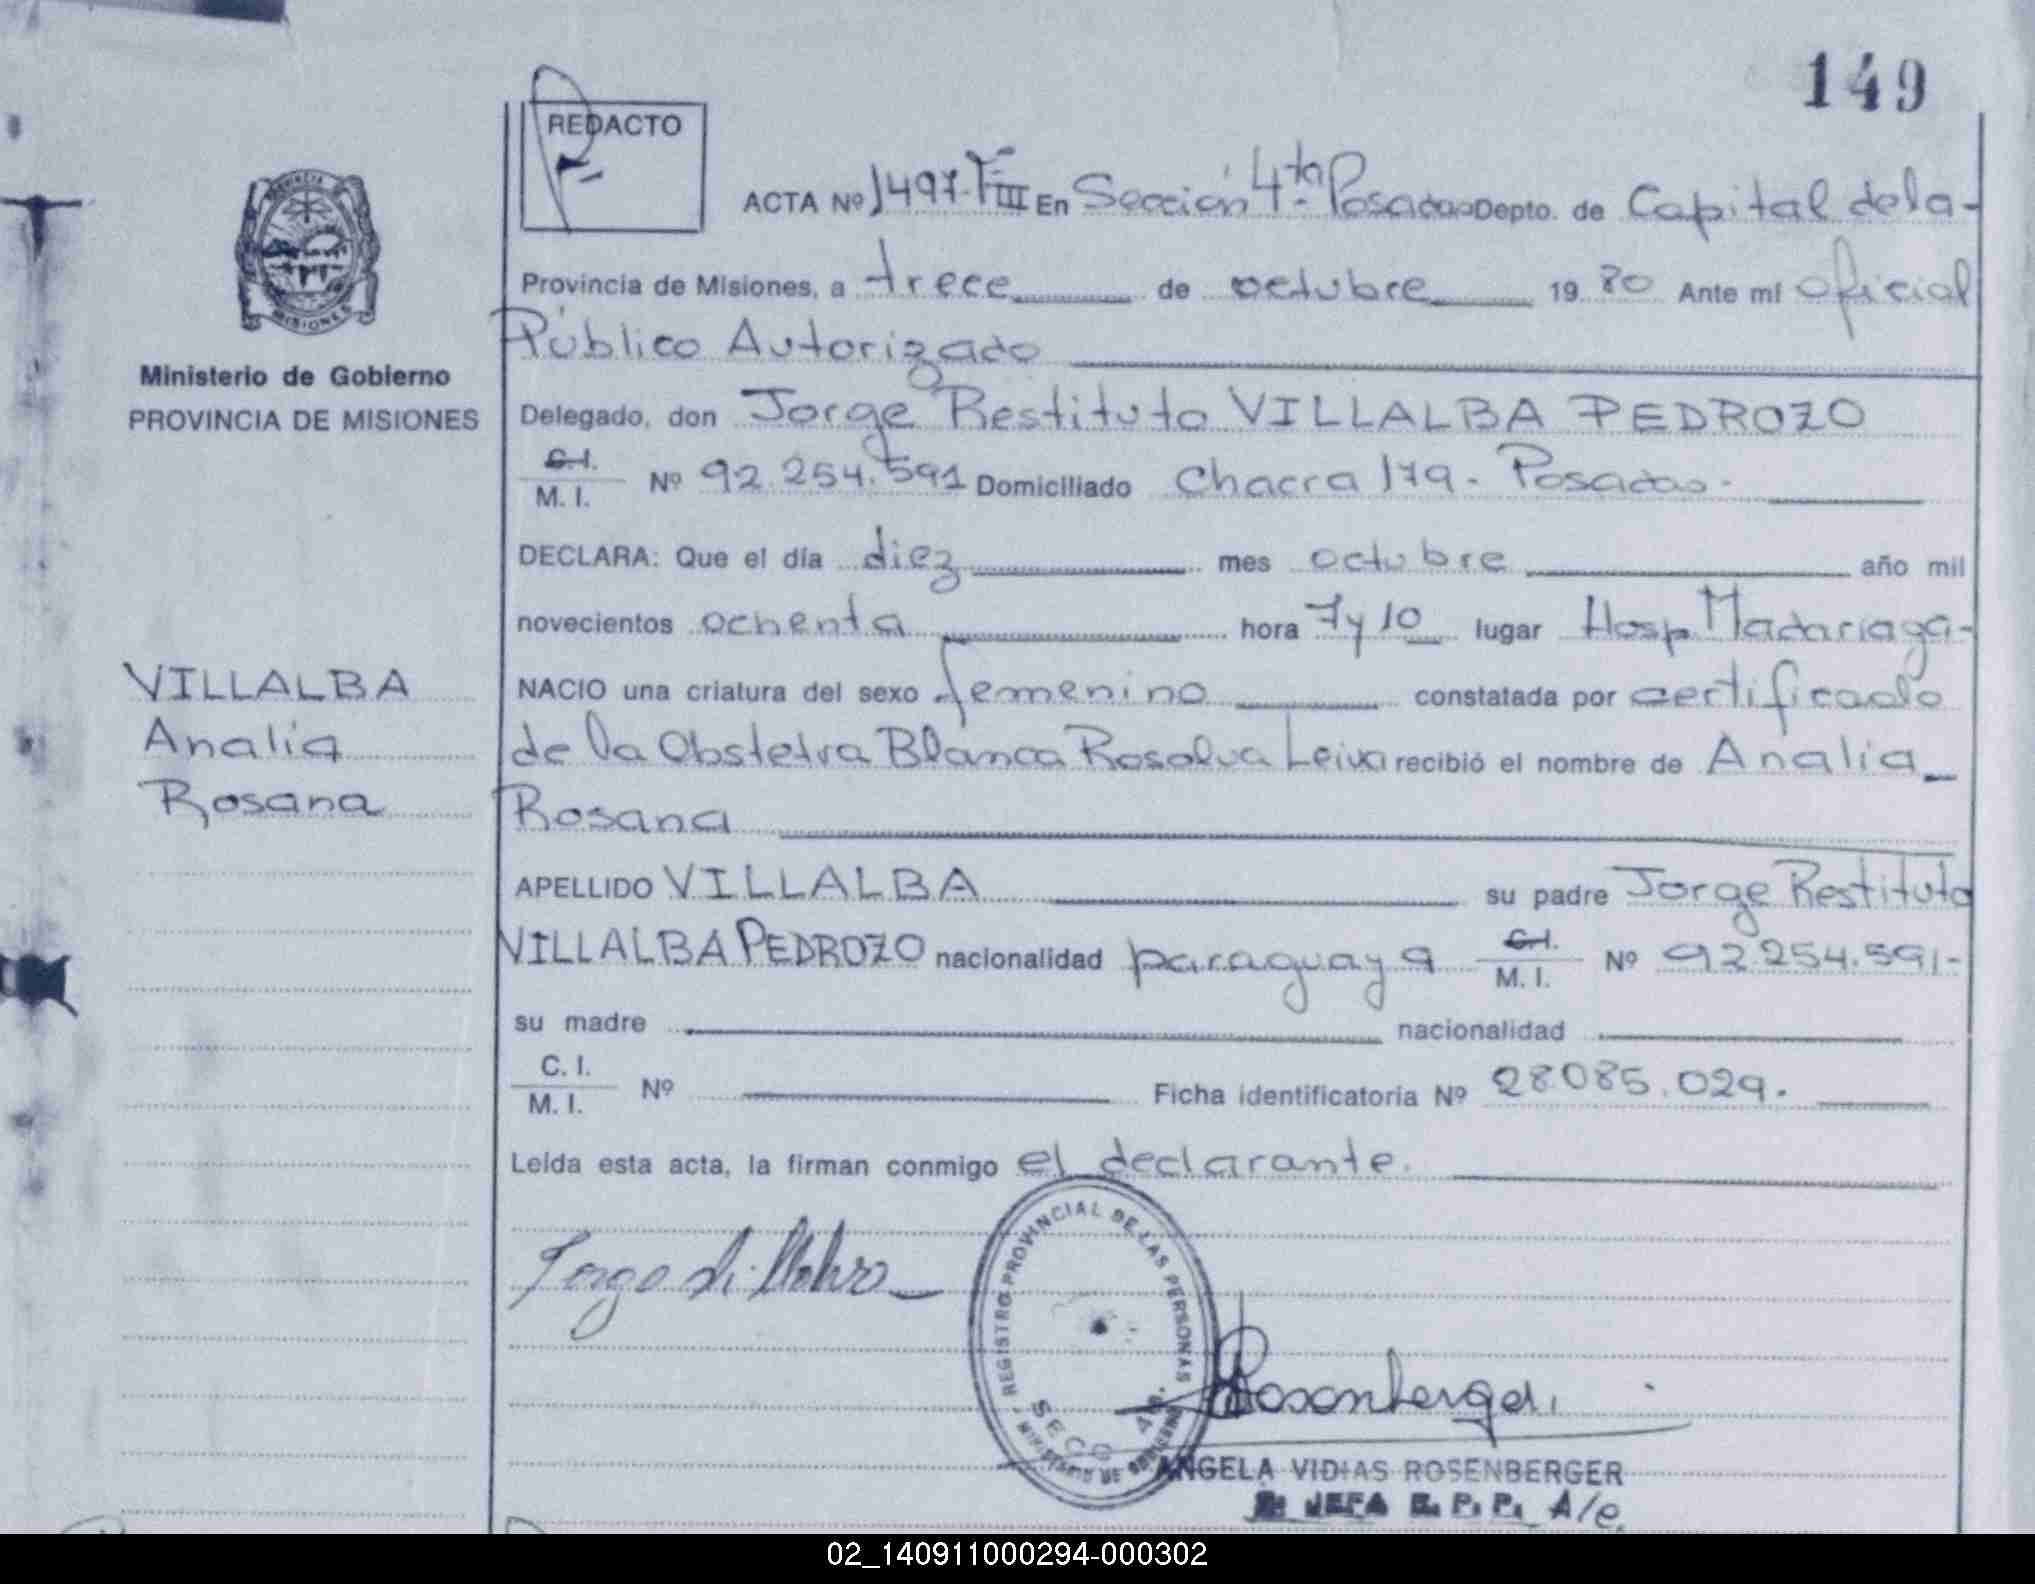 149
REDACTO
ACTA Nº 1497-TºIII En Sección 4ta. Posadas Depto. de Capital de la-
Provincia de Misiones, a trece de octubre 1980 Ante mí oficial
Público Autorizado
Delegado, don Jorge Restituto VILLALBA PEDROZO
C.I. M.I. Nº 92.254.591 Domiciliado Chacra 179.- Posadas.-
DECLARA: Que el día diez mes octubre año mil
novecientos ochenta hora 7 y 10 lugar Hosp Madariaga-
NACIO una criatura del sexo femenino constatada por certificado
de la Obstetra Blanca Rosalva Leiva recibió el nombre de Analía
Rosana
APELLIDO VILLALBA su padre Jorge Restituto
VILLALBA PEDROZO nacionalidad paraguaya C.I. M.I. Nº 92.254.591-
su madre nacionalidad
C.I. M.I. Nº Ficha identificatoria Nº 28.085.029.
Leída esta acta, la firman conmigo el declarante.
PROVINCIA MISIONES
Ministerio de Gobierno
PROVINCIA DE MISIONES
VILLALBA
Analía
Rosana
REGISTRO PROVINCIAL DE LAS PERSONAS
SECC 4a.
Rosenberger
ANGELA VIDIAS ROSENBERGER
JEFA R. P. P. A/c.
02_140911000294-000302